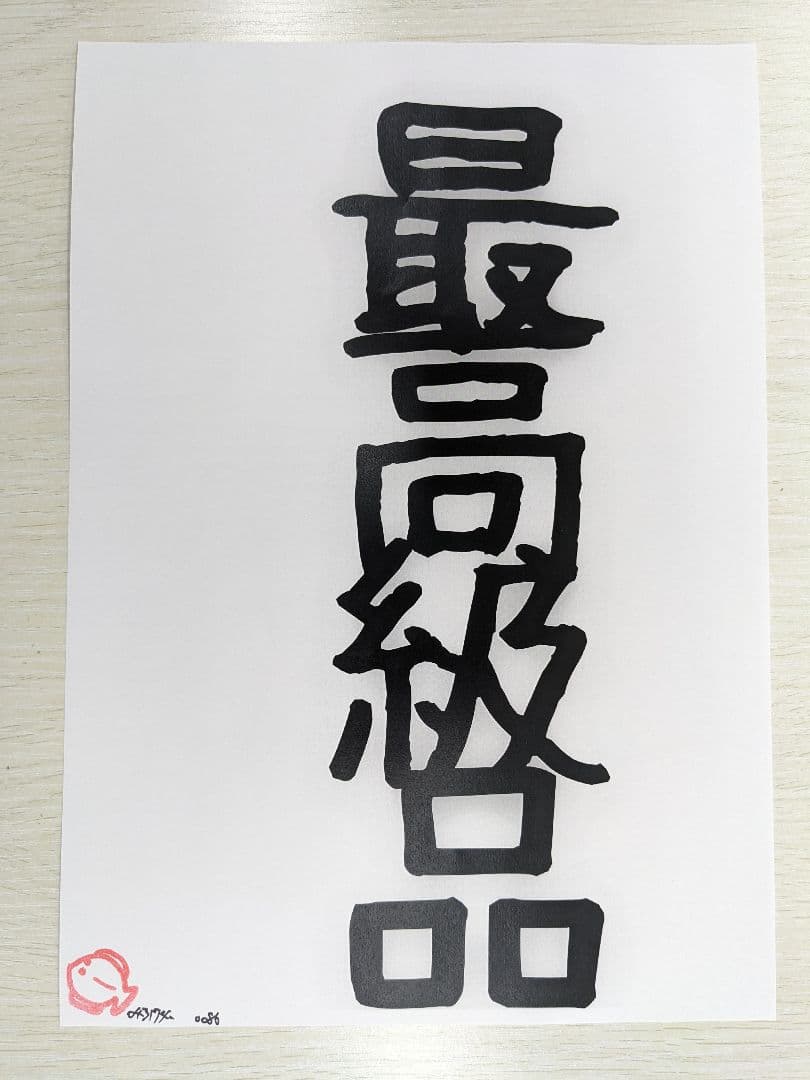 最高級品
0086